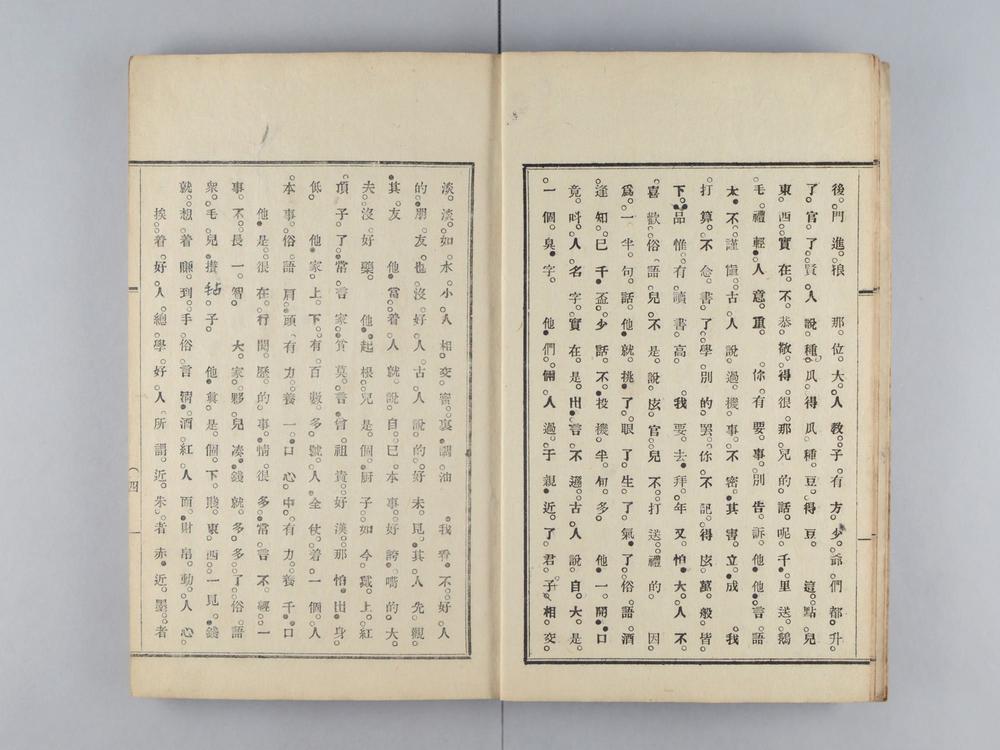 後門進狼　那位大人教子有方少爺們都升
了官了賢人說種瓜得瓜種豆得豆　這點兒
東西實在不恭敬得很那兒的話呢千里送鵝
毛禮輕人意重　你有要事別告訴他他言語
太不謹愼古人說過機事不密其害立成　我
打算不念書了學別的罷你不記得広萬般皆
下品惟有讀書高　我要去拜年又怕大人不
喜歡俗語兒不是說広官兒不打送禮的　因
爲一半句話他就挑了眼了生了氣了俗語酒
逢知己千盃少話不投機半句多　他一開口
竟呌人名字實在是出言不遜古人說自大是
一個臭字　他們倆人過于親近了君子相交
淡淡如水小人相交密裏調油　我看不好人
的朋友也沒好人古人說的好未見其人先觀
其友　他當着人就說自己本事好誇嘴的大
夫沒好藥　他起根兒是個厨子如今戴上紅
頂子了常言家貧莫言曾祖貴好漢那怕出身
低　他家上下有百數多號人全仗着一個人
本事俗語肩頭有力養一口心中有力養千口
他是很在行閱歷的事情很多常言不經一
事不長一智　大家夥兒湊錢就多多了俗語
衆毛兒攅毡子　他眞是個下賤東西一見錢
就想着賺到手俗言淸酒紅人面財帛動人心
挨着好人總學好人所謂近朱者赤近墨者
（四